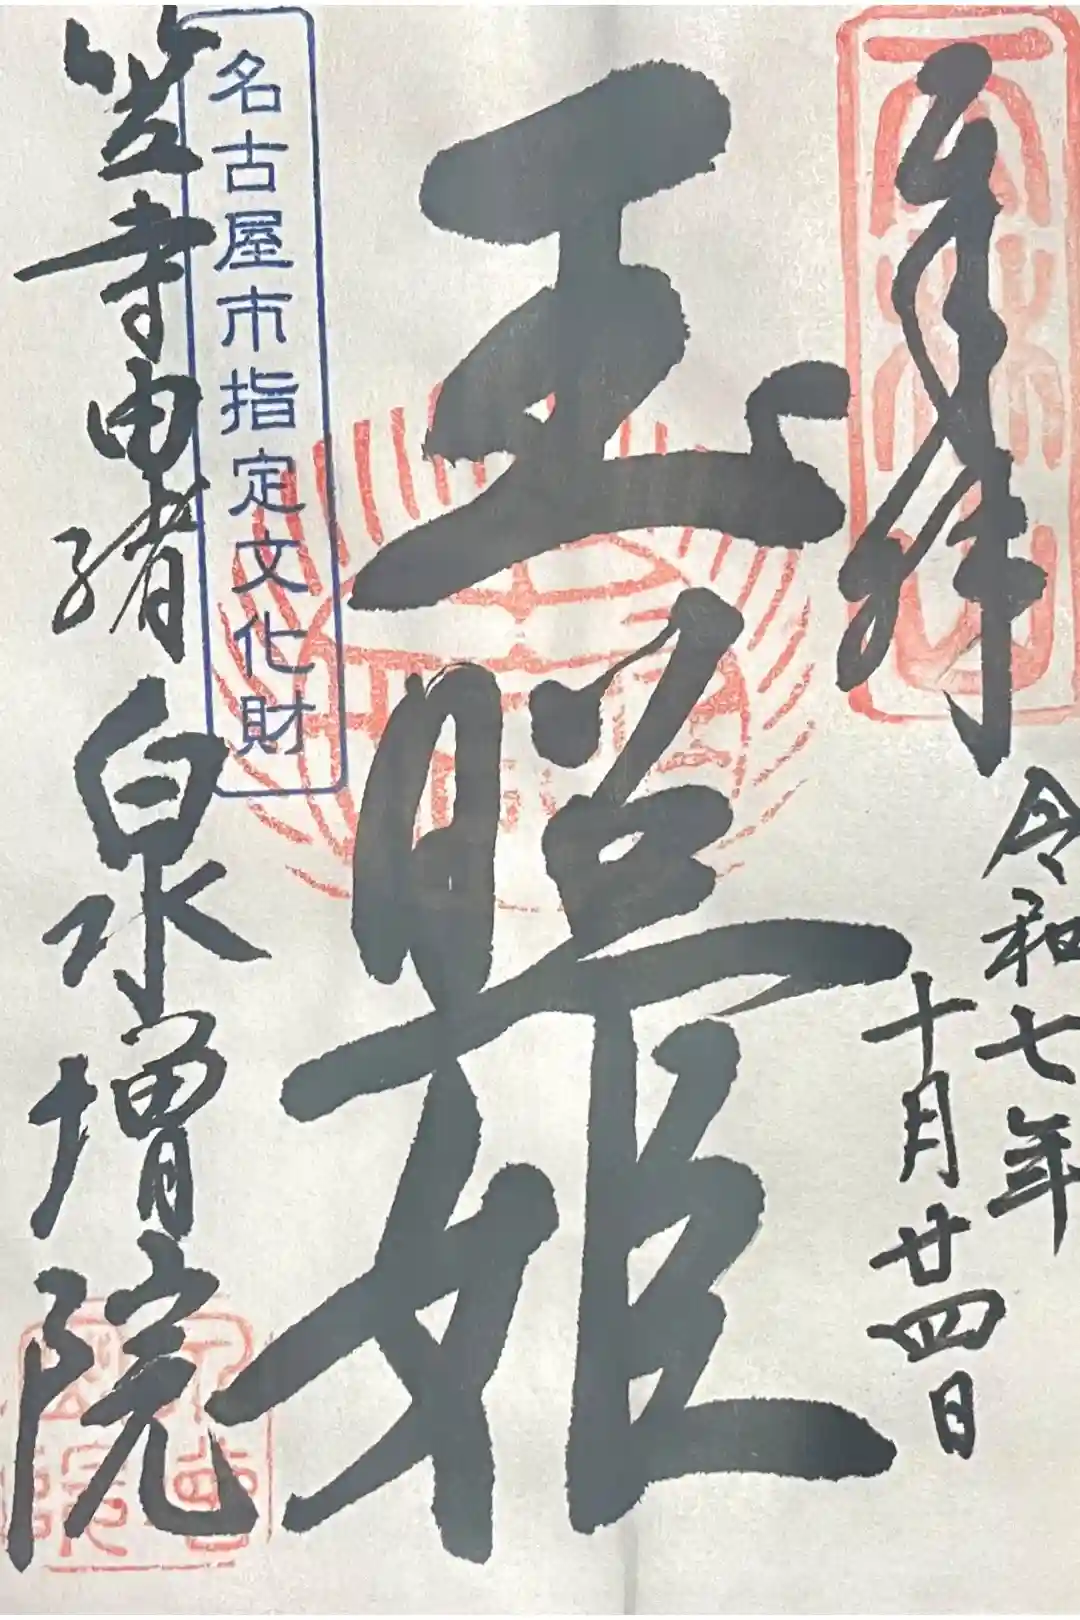 奉拝
令和七年
十月廿四日
玉照姫
名古屋市指定文化財
笠寺由緒
泉増院